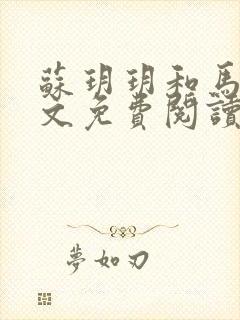 蘇玥玥和馬
文免費閱讀
夢如刃